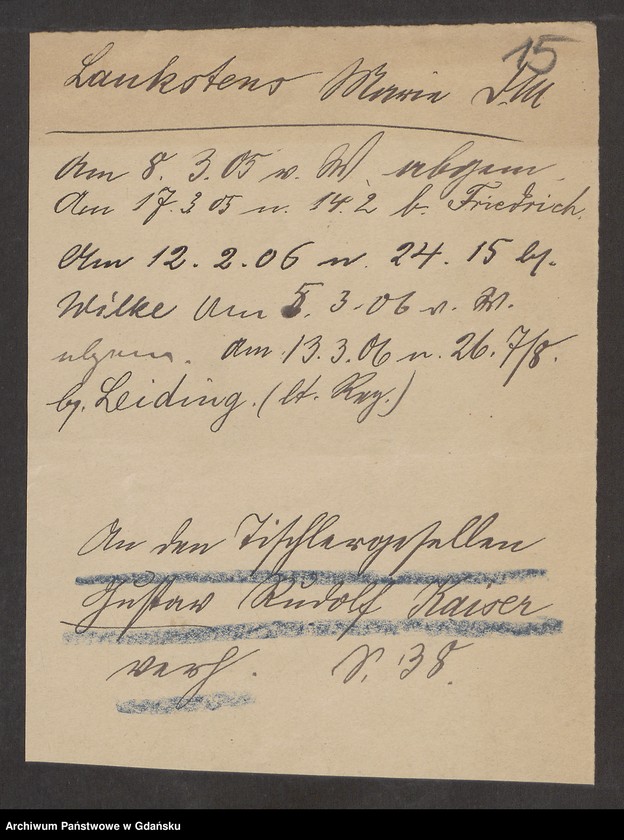 15
Laukstens Marie D.M
Am 8. 3.05 v. W. abgem.
Am 17.3 05 n. 14.2 b. Friedrich.
Am 12. 2. 06 n. 24. 15 bj.
Wilke Am 8. 3. 06 v. W.
abgem. Am 13.3.06 n. 26. 7/8.
bj. Leiding. (lt. Reg.)
An den Tischlergesellen
Gustaw Rudolf Kaiser
verh. S. 38.
Archiwum Państwowe w Gdańsku